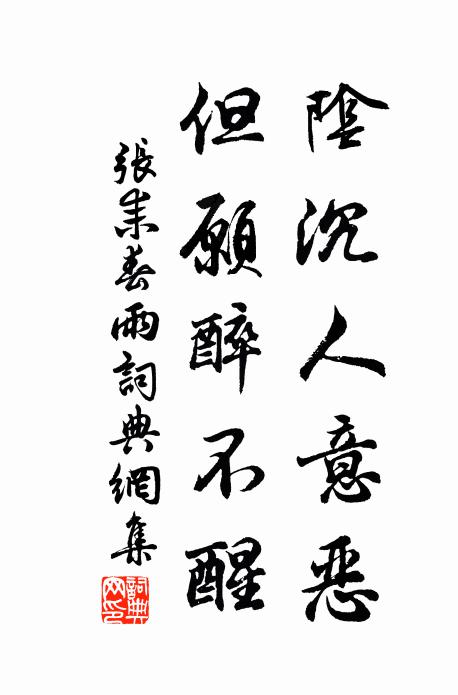 陰沉人意惡
但願醉不醒
張耒春雨詞典網集
詞典网印